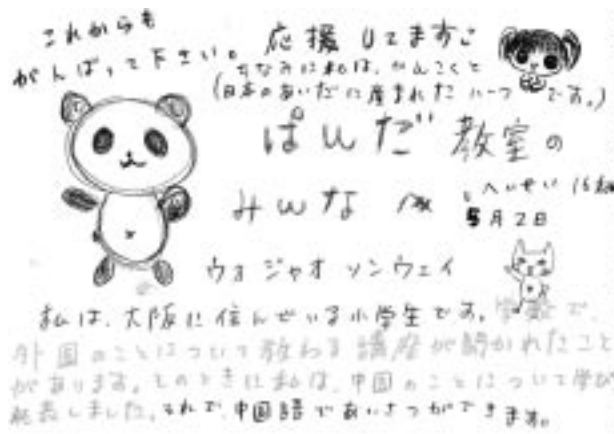 これからも
がんばって下さい。
応援してます。
ちなみに私は、かんこくと
(日本のあいだに産まれたハーフです。)
ぱんだ教室の
みんなへ
へいせい16年
5月2日
ウォ ジャオ ソンウェイ
私は、大阪に住んでいる小学生です。学校で、
外国のことについて教わる講座が開かれたこと
があります。そのときに私は、中国のことについて学び
発表しました。それで、中国語であいさつができます。